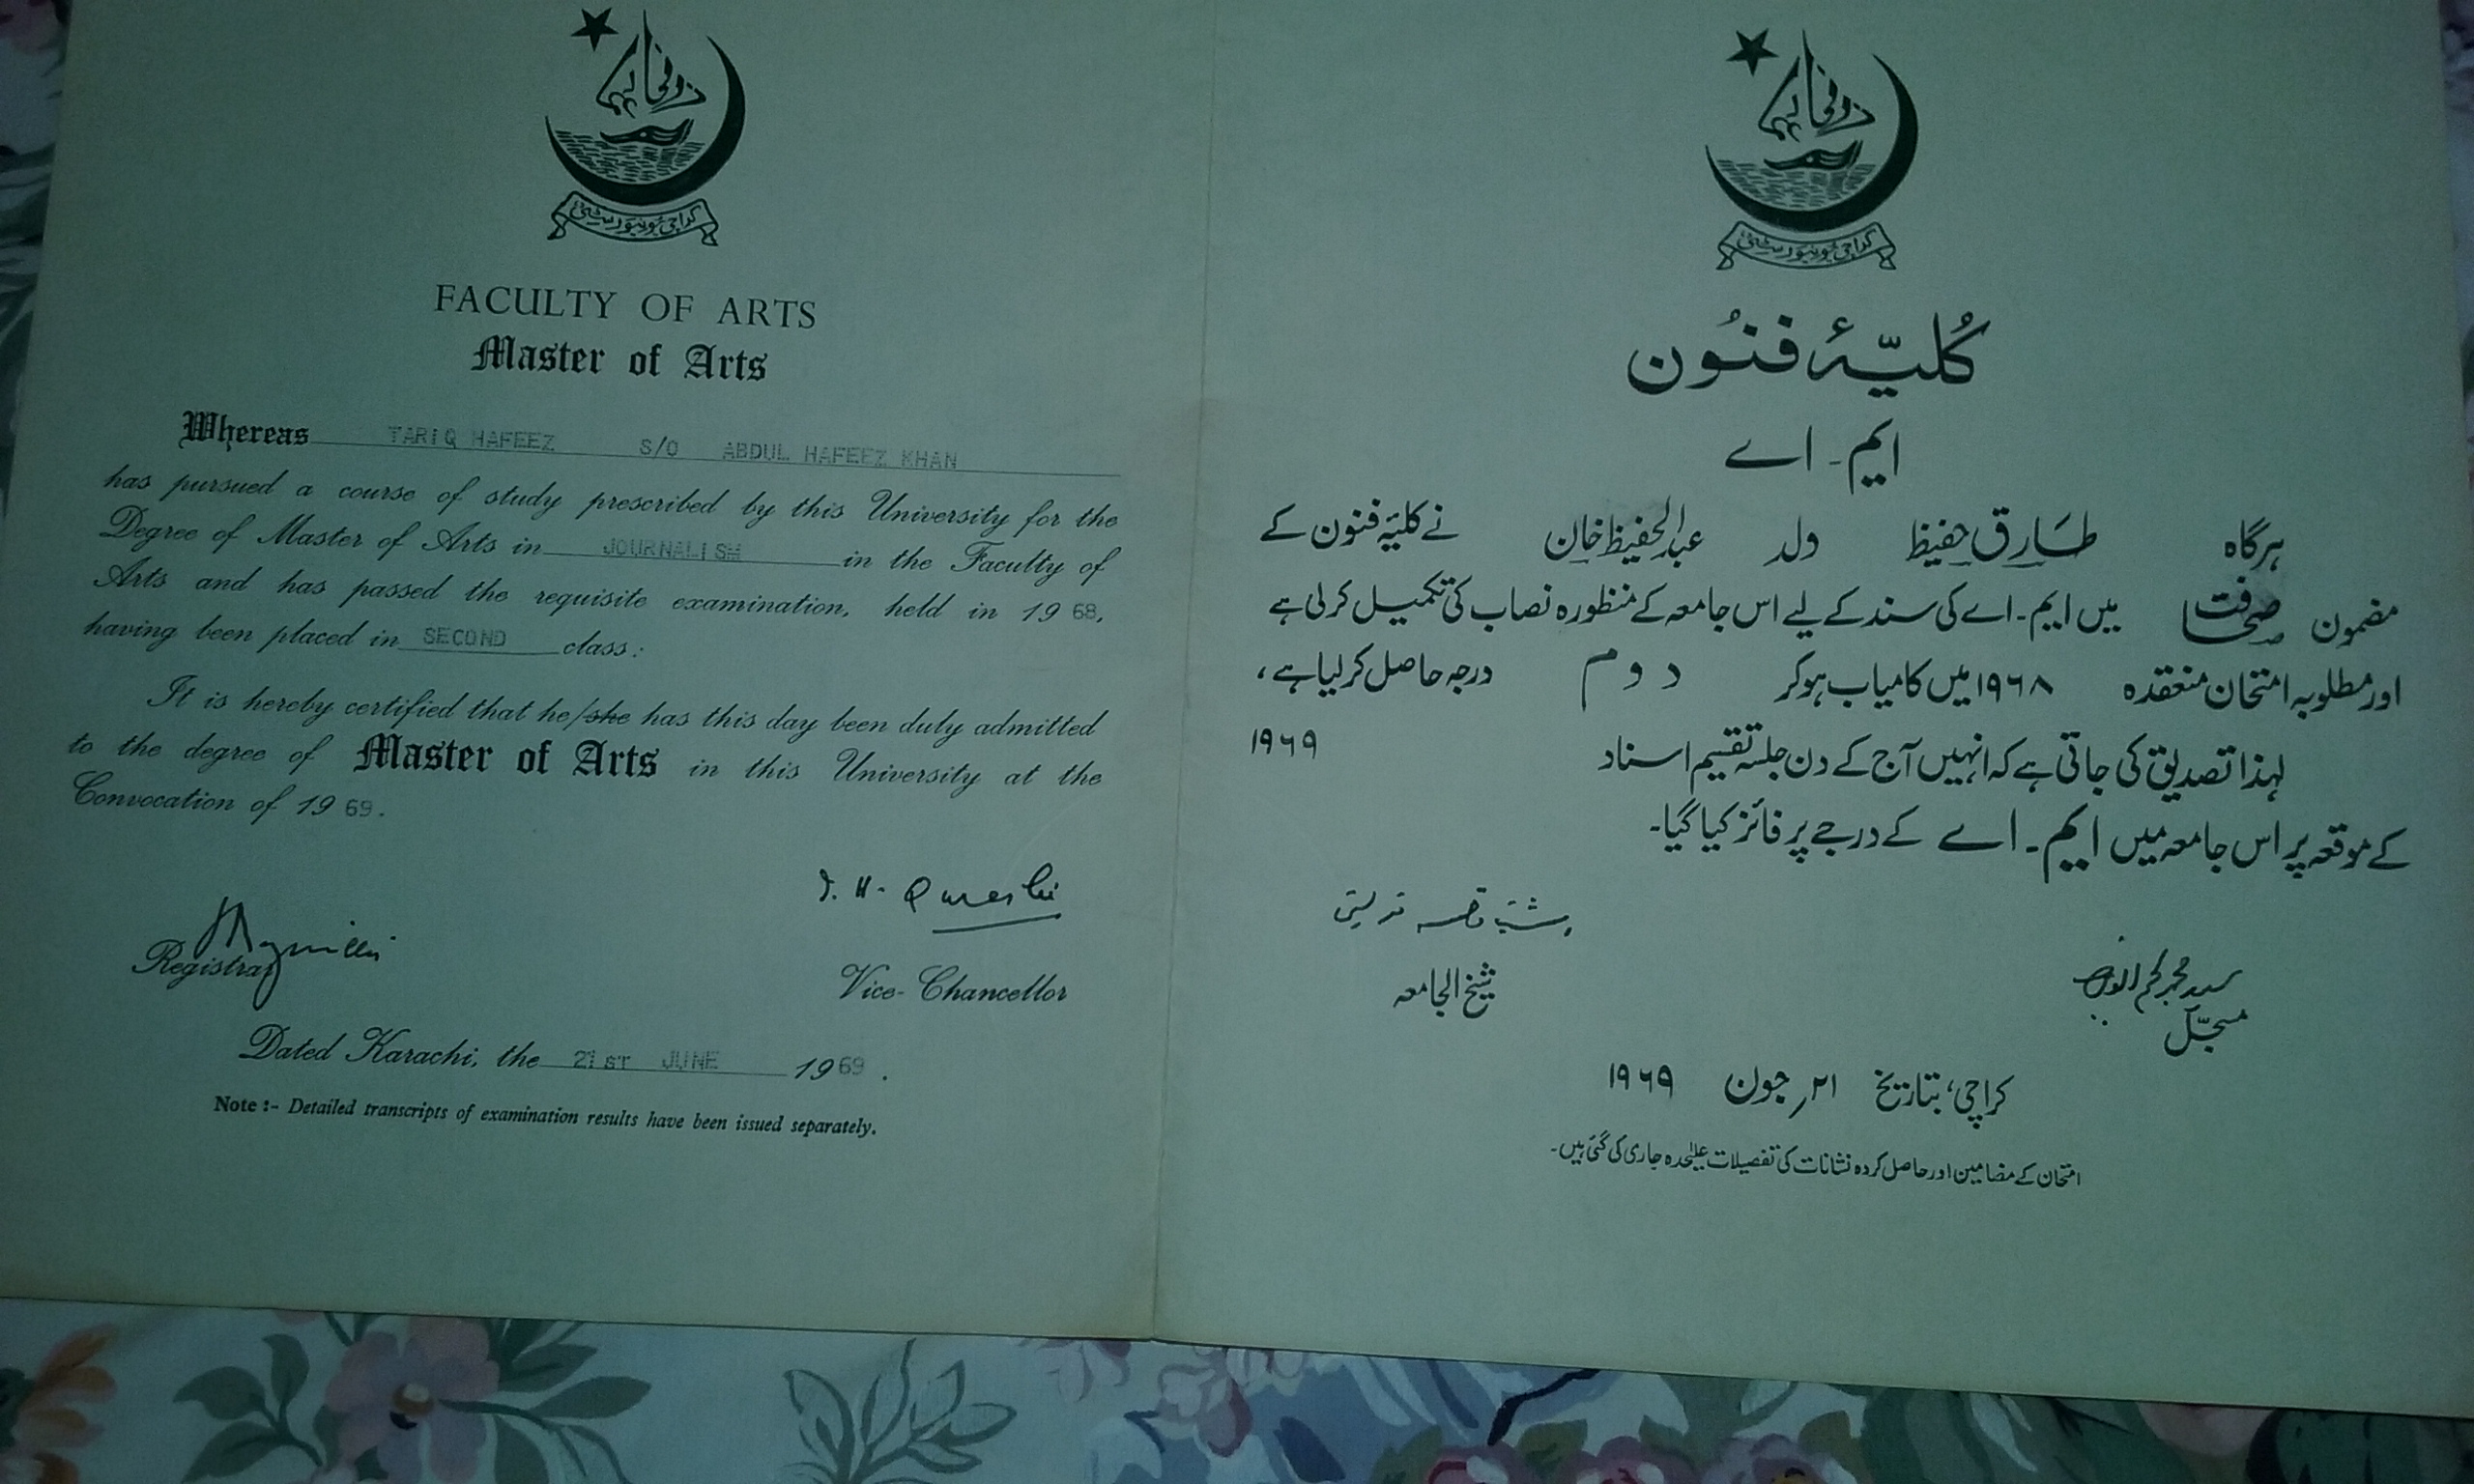 کراچی یونیورسٹی
FACULTY OF ARTS
Master of Arts
Whereas TARIQ HAFEEZ S/O ABDUL HAFEEZ KHAN
has pursued a course of study prescribed by this University for the
Degree of Master of Arts in JOURNALISM in the Faculty of
Arts and has passed the requisite examination, held in 1968,
having been placed in SECOND class:
It is hereby certified that he/she has this day been duly admitted
to the degree of Master of Arts in this University at the
Convocation of 1969.
I. H. Qureshi
Registrar
Vice-Chancellor
Dated Karachi, the 21ST JUNE 1969.
Note :- Detailed transcripts of examination results have been issued separately.
کراچی یونیورسٹی
کُلیّۂ فنُون
ایم - اے
ہرگاہ طارق حفیظ ولد عبدالحفیظ خان نے کلیۂ فنون کے
مضمون صحافت میں ایم - اے کی سند کے لیے اس جامعہ کے منظورہ نصاب کی تکمیل کرلی ہے
اور مطلوبہ امتحان منعقدہ ۱۹۶۸ میں کامیاب ہوکر دوم درجہ حاصل کرلیا ہے،
لہذا تصدیق کی جاتی ہے کہ انہیں آج کے دن جلسہ تقسیم اسناد ۱۹۶۹
کے موقعہ پر اس جامعہ میں ایم - اے کے درجے پر فائز کیا گیا۔
شیخ الجامعہ
مسجّل
کراچی، بتاریخ ۲۱؍ جون ۱۹۶۹
امتحان کے مضامین اور حاصل کردہ نشانات کی تفصیلات علیٰحدہ جاری کی گئی ہیں۔